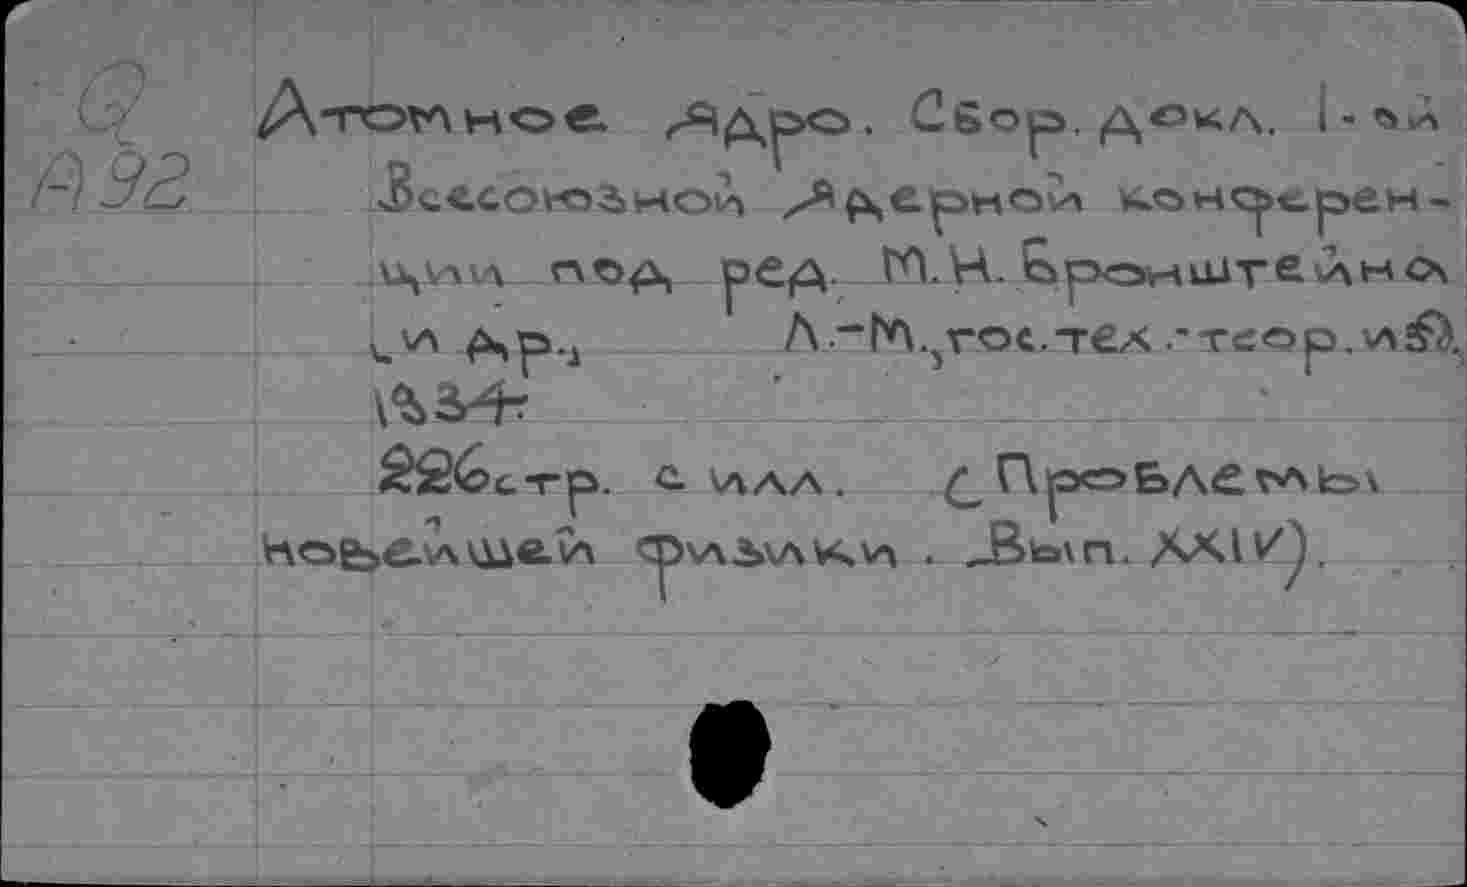 Q
А 92
Атомное Ядро. Сбор. докл. I-ой
Всесоюзной Ядерной конферен-
ции под ред. М.Н. Бронштейна
[и др.] Л.-М., гос. тех.-теор. изд.,
1934.
226 стр. с илл. (Проблемы
новейшей физики. Вып. XXIV).